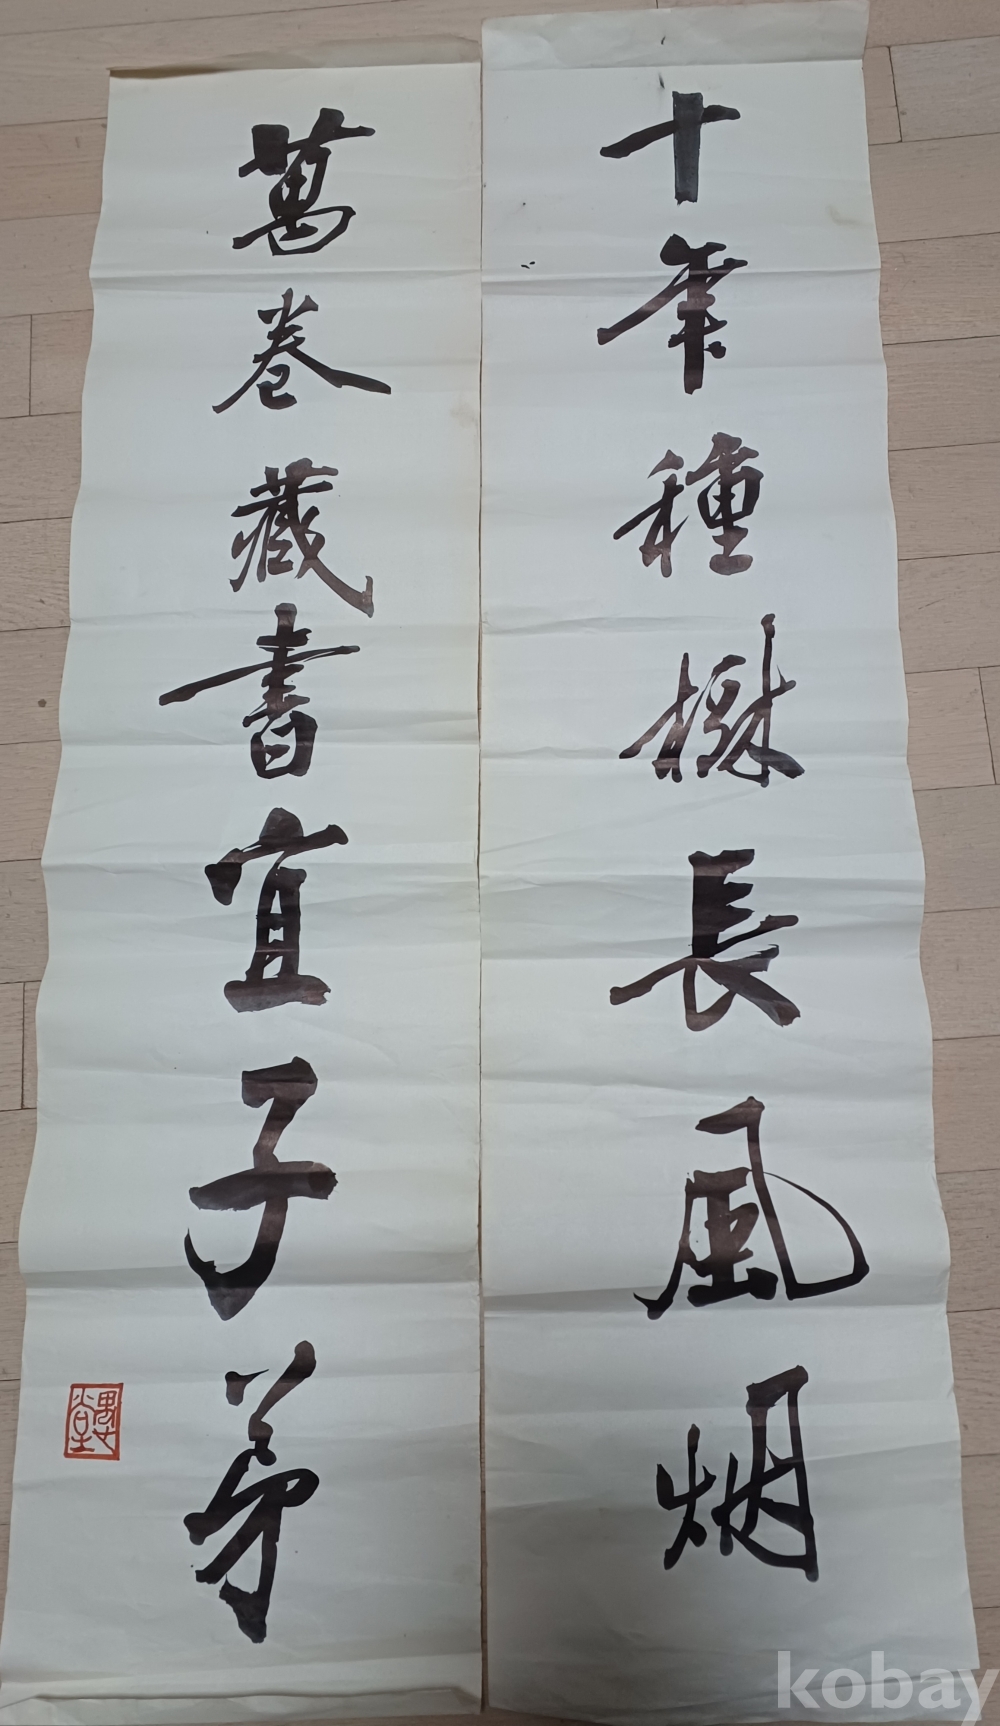 十年種樹長風烟
萬卷藏書宜子弟
kobay